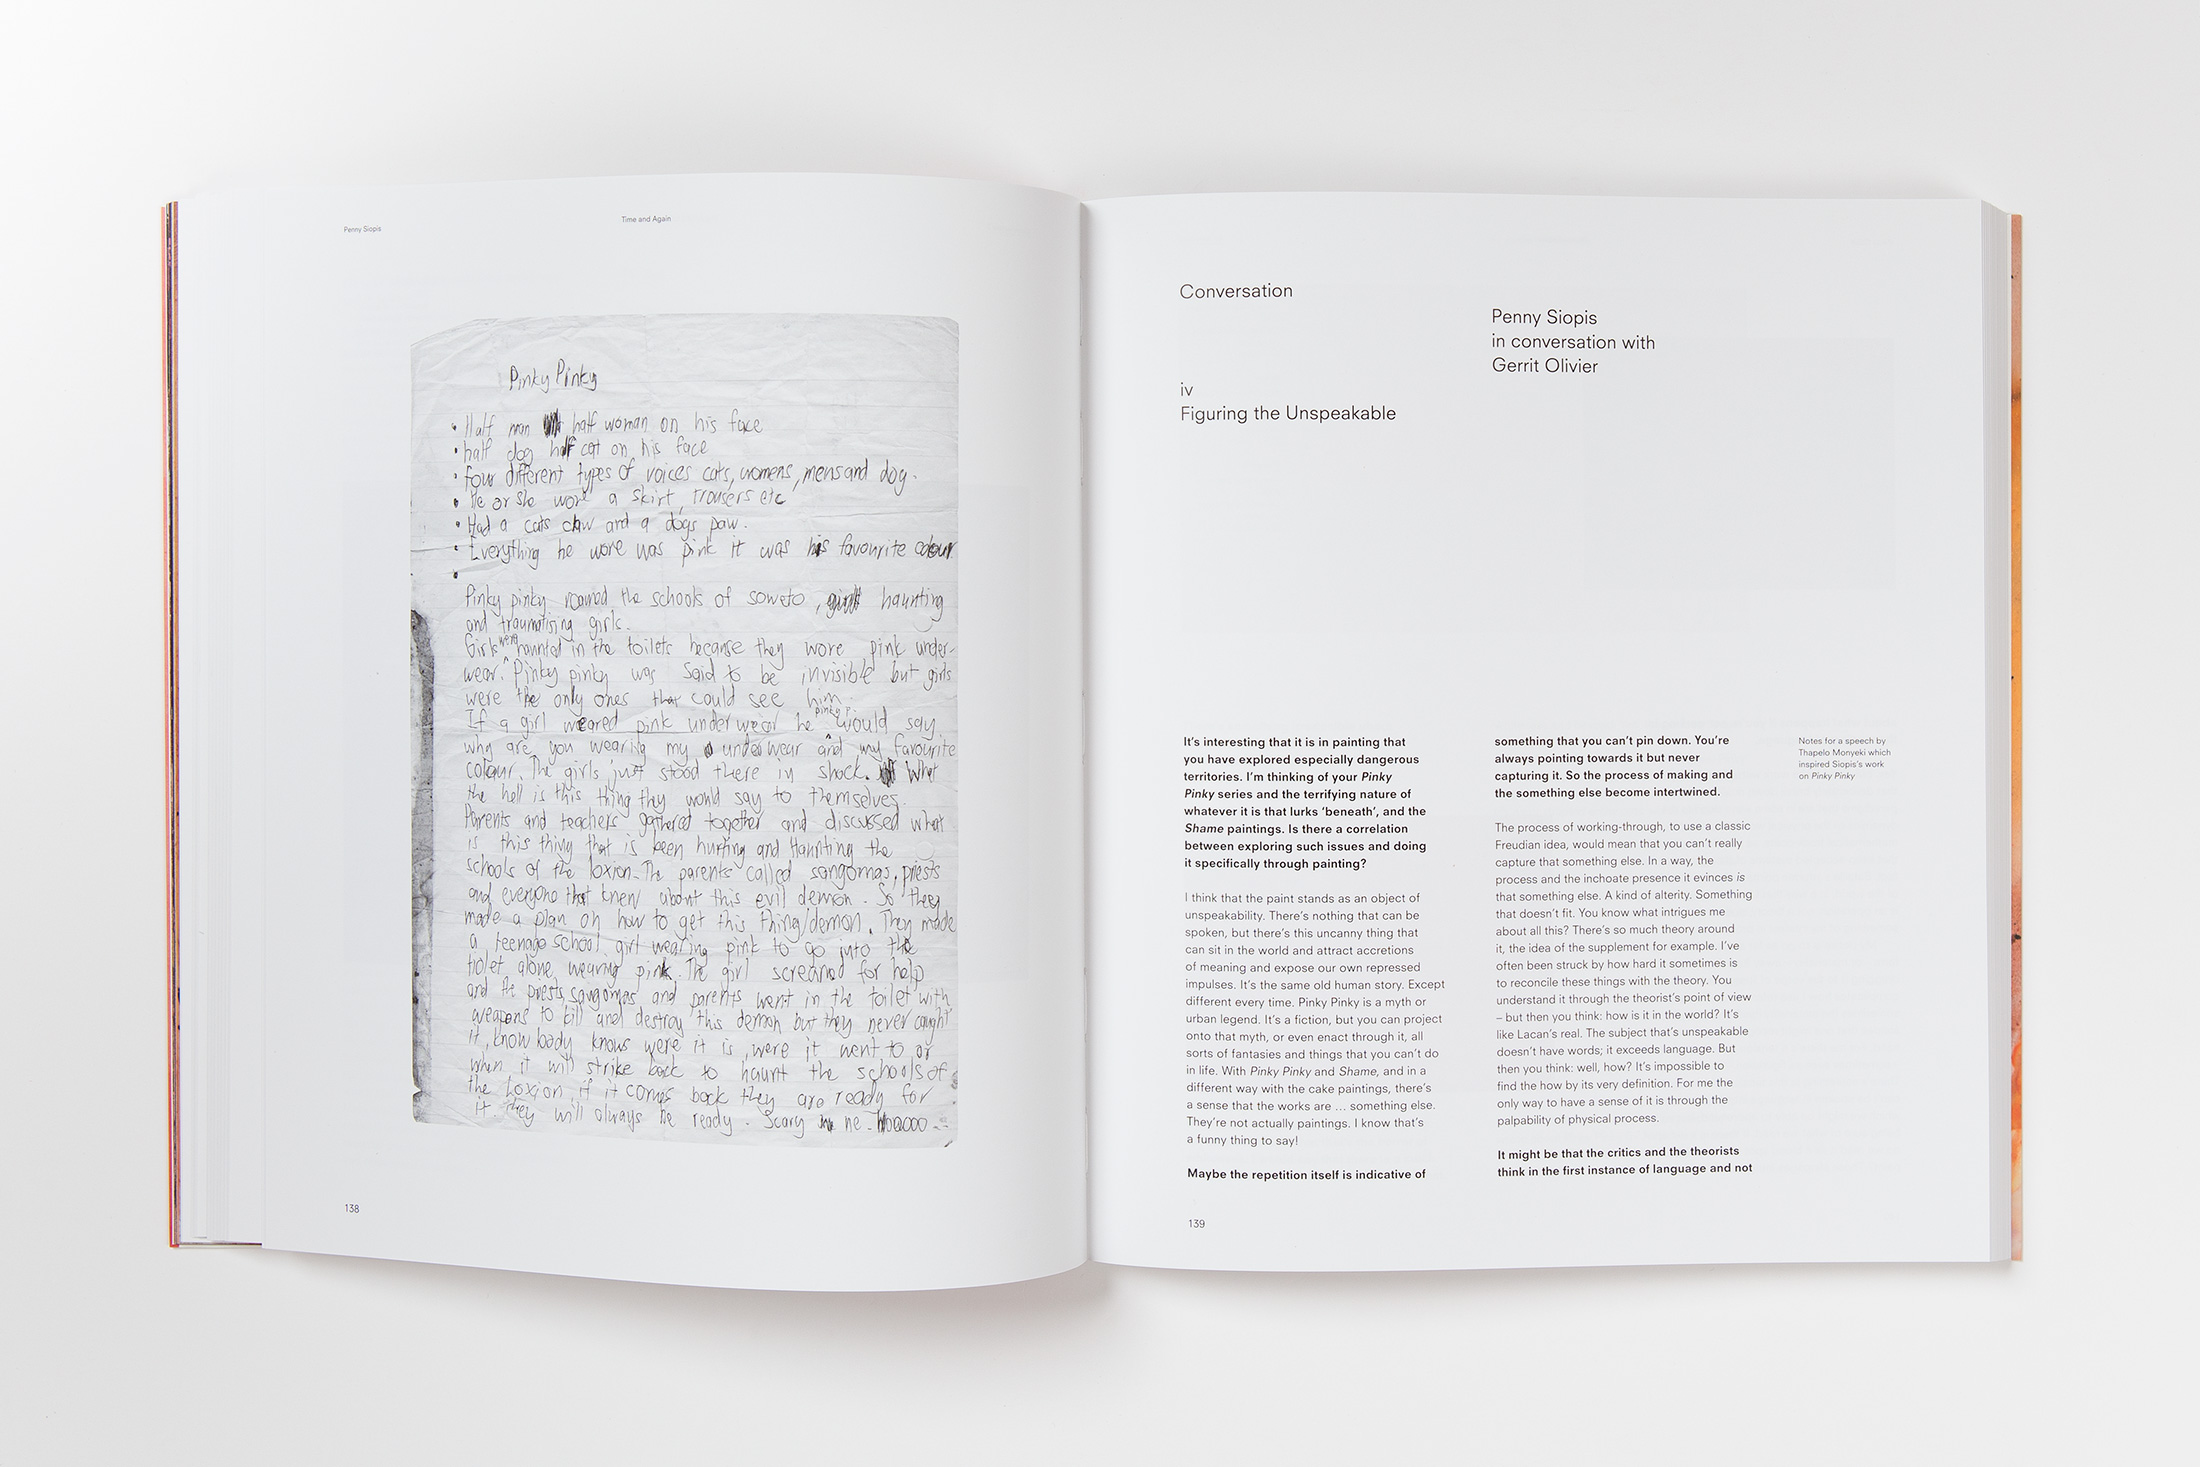 Penny Siopis
Time and Again
Pinky Pinky
• Half man half woman on his face
• half dog half cat on his face
• four different types of voices cats, womens, mens and dog.
• He or she wore a skirt, trousers etc
• Had a cats claw and a dogs paw.
• Everything he wore was pink it was his favourite colour
•
Pinky pinky roamed the schools of soweto, haunting
and traumatising girls.
Girls were haunted in the toilets because they wore pink under-
wear. Pinky pinky was said to be invisible but girls
were the only ones that could see him.
If a girl weared pink underwear he pinky p. would say
why are you wearing my underwear and my favourite
colour. The girls just stood there in shock. What
the hell is this thing they would say to themselves.
Parents and teachers gathered together and discussed what
is this thing that is been hurting and Haunting the
schools of the loxion. The parents called sangomas, priests
and everyone that knew about this evil demon. So they
made a plan on how to get this thing/demon. They made
a teenage school girl wearing pink to go into the
tiolet alone wearing pink. The girl screamed for help
and the priests, sangomas and parents went in the toilet with
weapons to kill and destroy this demon but they never caught
it, know body knows were it is, were it went to or
when it will strike back to haunt the schools of
the Loxion, if it comes back they are ready for
it they will always be ready. Scary ne. Whooooo
138
Conversation
Penny Siopis
in conversation with
Gerrit Olivier
iv
Figuring the Unspeakable
It's interesting that it is in painting that
you have explored especially dangerous
territories. I'm thinking of your Pinky
Pinky series and the terrifying nature of
whatever it is that lurks ‘beneath’, and the
Shame paintings. Is there a correlation
between exploring such issues and doing
it specifically through painting?
I think that the paint stands as an object of
unspeakability. There's nothing that can be
spoken, but there's this uncanny thing that
can sit in the world and attract accretions
of meaning and expose our own repressed
impulses. It's the same old human story. Except
different every time. Pinky Pinky is a myth or
urban legend. It's a fiction, but you can project
onto that myth, or even enact through it, all
sorts of fantasies and things that you can't do
in life. With Pinky Pinky and Shame, and in a
different way with the cake paintings, there's
a sense that the works are … something else.
They're not actually paintings. I know that's
a funny thing to say!
Maybe the repetition itself is indicative of
something that you can't pin down. You're
always pointing towards it but never
capturing it. So the process of making and
the something else become intertwined.
The process of working-through, to use a classic
Freudian idea, would mean that you can't really
capture that something else. In a way, the
process and the inchoate presence it evinces is
that something else. A kind of alterity. Something
that doesn't fit. You know what intrigues me
about all this? There's so much theory around
it, the idea of the supplement for example. I've
often been struck by how hard it sometimes is
to reconcile these things with the theory. You
understand it through the theorist's point of view
– but then you think: how is it in the world? It's
like Lacan's real. The subject that's unspeakable
doesn't have words; it exceeds language. But
then you think: well, how? It's impossible to
find the how by its very definition. For me the
only way to have a sense of it is through the
palpability of physical process.
It might be that the critics and the theorists
think in the first instance of language and not
Notes for a speech by
Thapelo Monyeki which
inspired Siopis's work
on Pinky Pinky
139